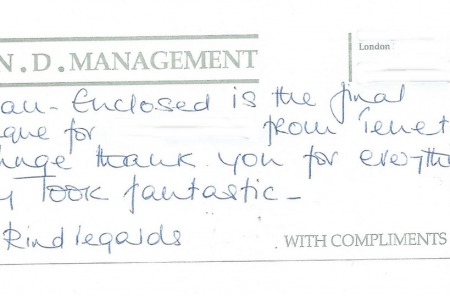 N.D. MANAGEMENT
London
au- Enclosed is the final
que for from Tenet
thank you for everyth
Look fantastic -
Kind regards
WITH COMPLIMENTS